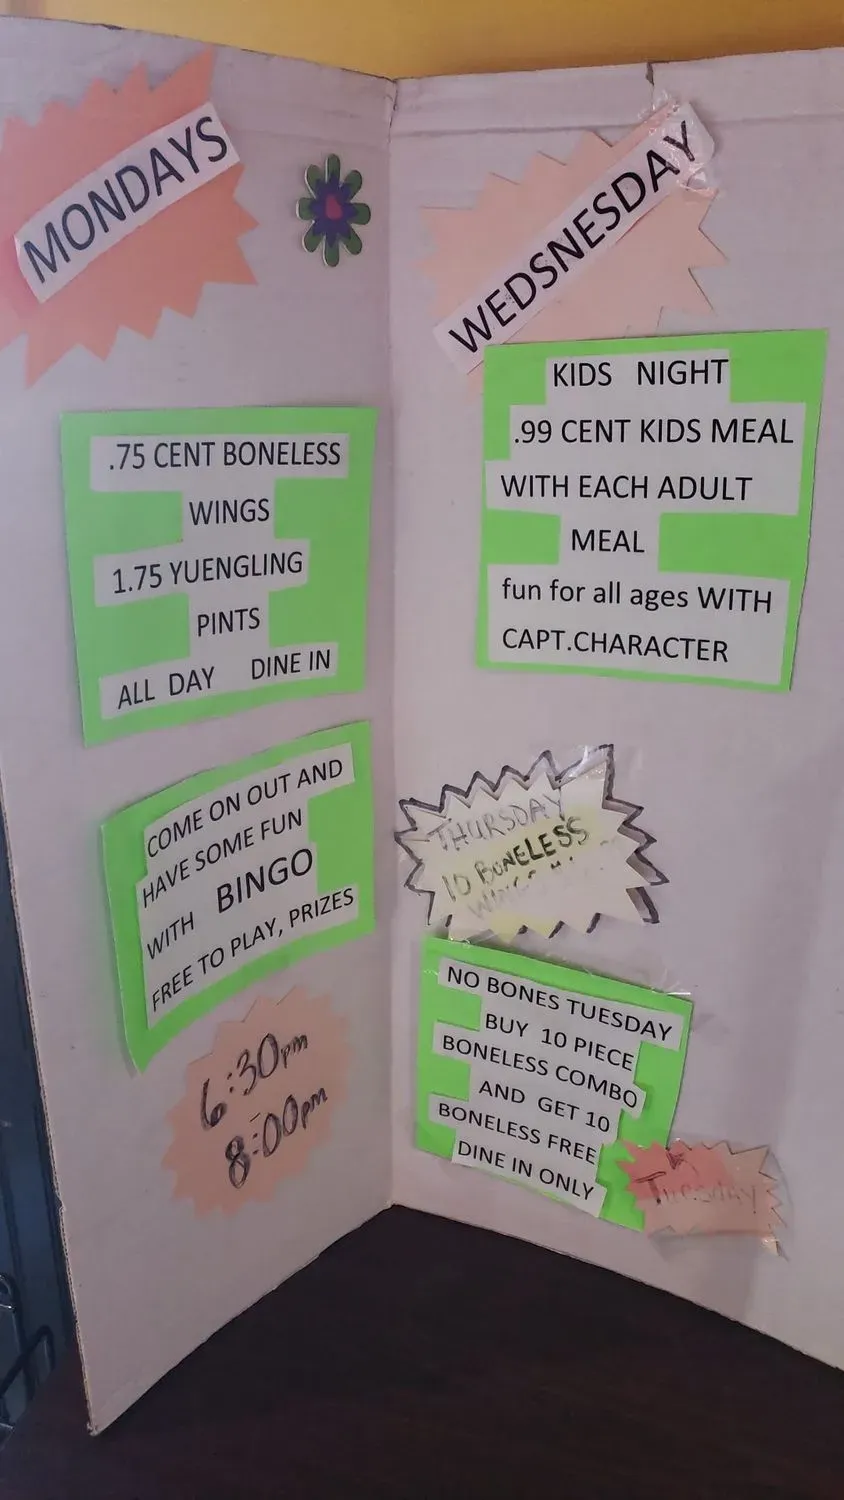 MONDAYS
.75 CENT BONELESS
WINGS
1.75 YUENGLING
PINTS
ALL DAY DINE IN
COME ON OUT AND
HAVE SOME FUN
WITH BINGO
FREE TO PLAY, PRIZES
6:30pm
8:00pm
WEDSNESDAY
KIDS NIGHT
.99 CENT KIDS MEAL
WITH EACH ADULT
MEAL
fun for all ages WITH
CAPT.CHARACTER
THURSDAY
10 BONELESS
WINGS
NO BONES TUESDAY
BUY 10 PIECE
BONELESS COMBO
AND GET 10
BONELESS FREE
DINE IN ONLY
Tuesday